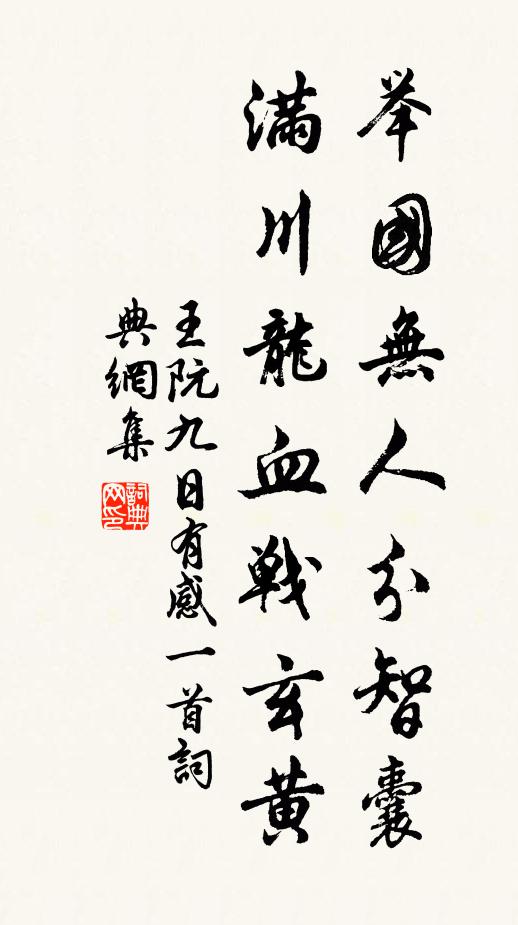 举國無人分智囊
满川龍血戰玄黄
王阮九日有感一首詞
典網集
詞典网印